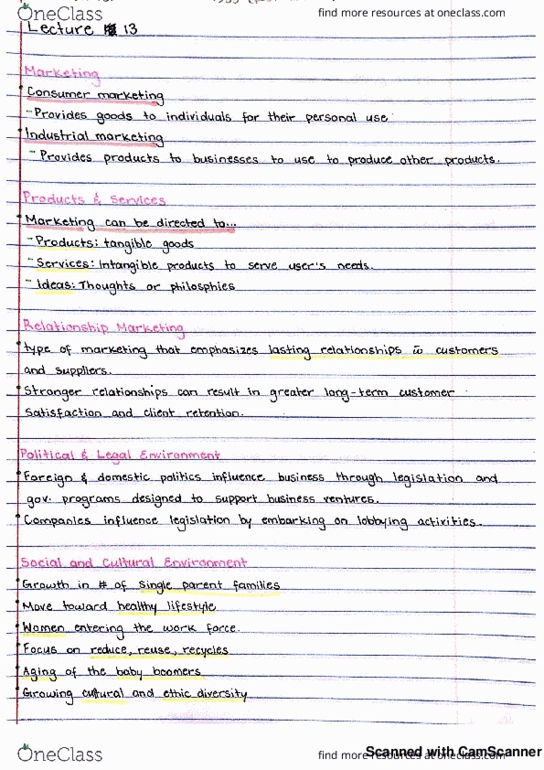 OneClass
find more resources at oneclass.com
Lecture 13
Marketing
Consumer marketing
- Provides goods to individuals for their personal use.
Industrial marketing
- Provides products to businesses to use to produce other products.
Products & Services
Marketing can be directed to...
- Products: tangible goods
- Services: Intangible products to serve user's needs.
- Ideas: Thoughts or philosphies
Relationship Marketing
type of marketing that emphasizes lasting relationships w̄ customers
and suppliers.
Stronger relationships can result in greater long-term customer
satisfaction and client retention.
Political & Legal Environment
Foreign & domestic politics influence business through legislation and
gov. programs designed to support business ventures.
Companies influence legislation by embarking on lobbying activities.
Social and Cultural Environment
Growth in # of single parent families
Move toward healthy lifestyle
Women entering the work force.
Focus on reduce, reuse, recycles
Aging of the baby boomers
Growing cultural and ethic diversity
OneClass
find more resources at oneclass.com
Scanned with CamScanner